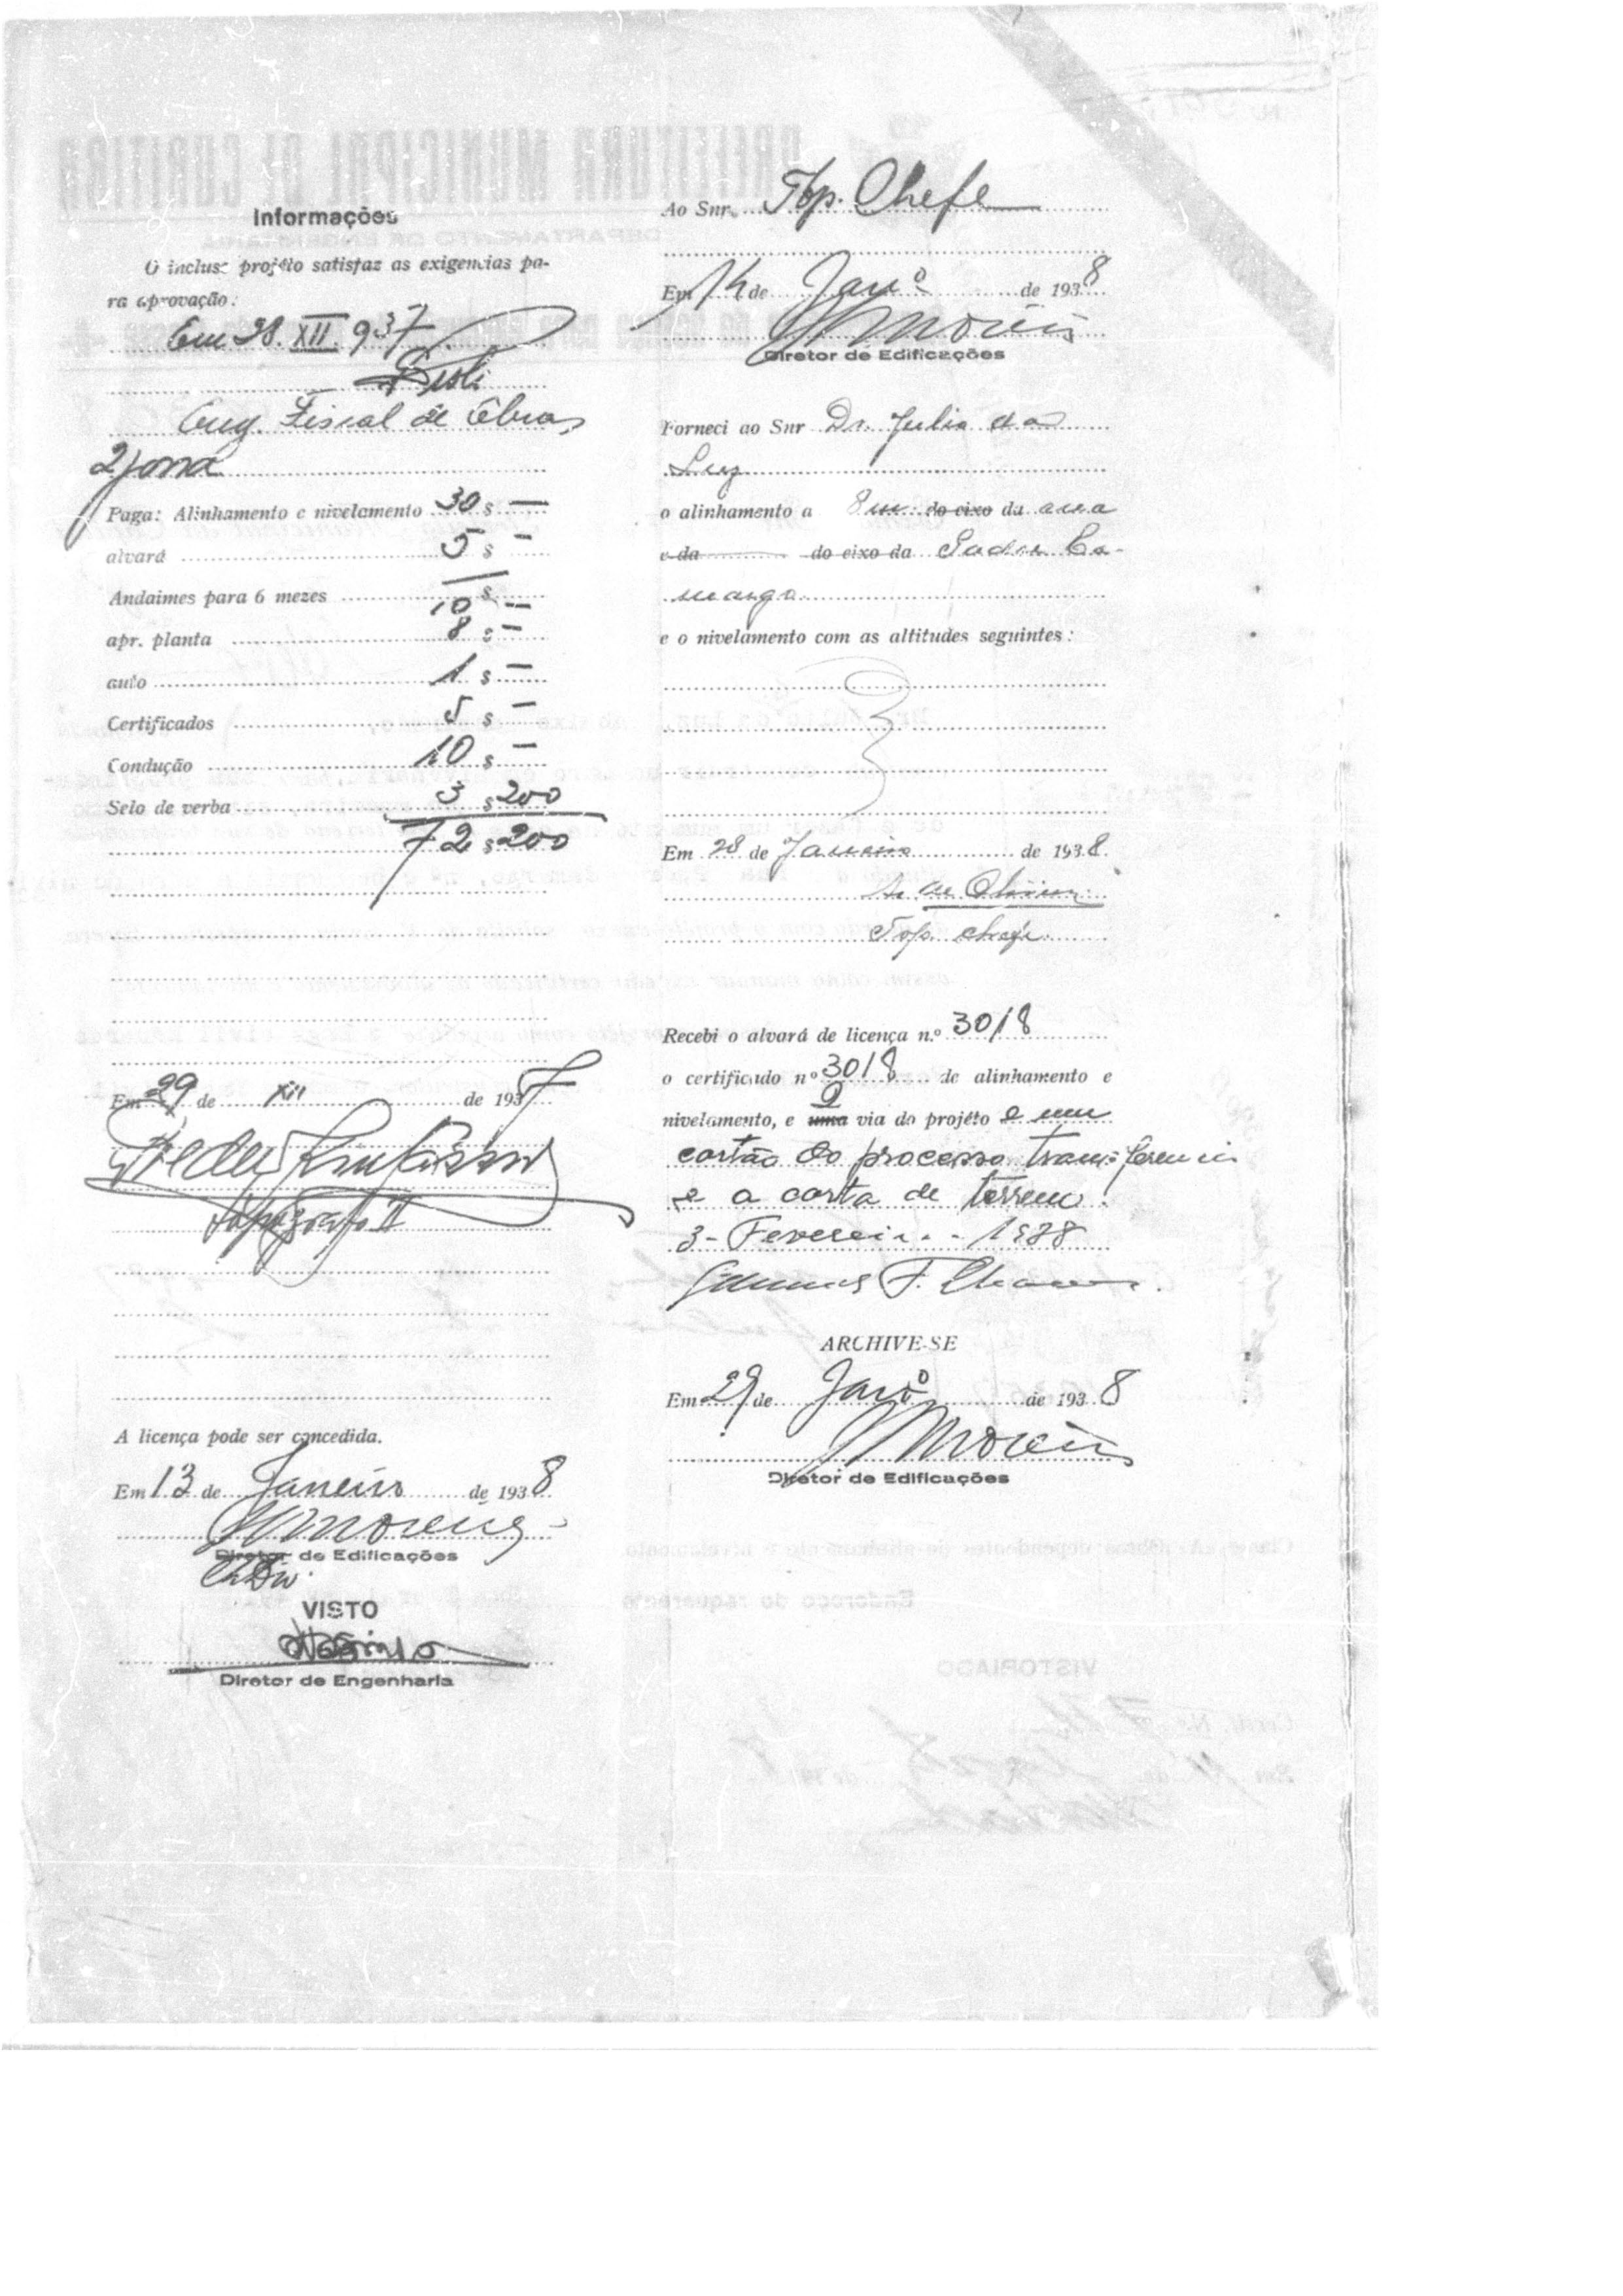 Informações
O incluso projéto satisfaz as exigencias pa-
ra aprovação.
Em 28. XII. 937
Eng. Fiscal de Obras
2 zona
Paga: Alinhamento e nivelamento 30 $ —
alvará 5 $ —
Andaimes para 6 mezes 10 $ —
apr. planta 8 $ —
auto 1 $ —
Certificados 5 $ —
Condução 10 $ —
Selo de verba 3 $ 200
72 $ 200
Em 29 de XII de 1937
Topógrafo II
A licença pode ser concedida.
Em 13 de Janeiro de 1938
Diretor de Edificações
VISTO
Diretor de Engenharia
Ao Snr. Top. Chefe
Em 14 de Janº de 1938
Diretor de Edificações
Forneci ao Snr Dr. Julio da
Luz
o alinhamento a 8 m. do eixo da
e da do eixo da Padre Ca-
margo
e o nivelamento com as altitudes seguintes:
Em 28 de Janeiro de 1938.
A. de Oliveira
Top. chefe.
Recebi o alvará de licença n.º 3018
o certificado nº 3018 de alinhamento e
nivelamento, e uma 2 via do projéto e um
cartão do processo transferencia
e a carta de terreno.
3 - Fevereiro - 1938
ARCHIVE-SE
Em 29 de Janº de 1938
Diretor de Edificações